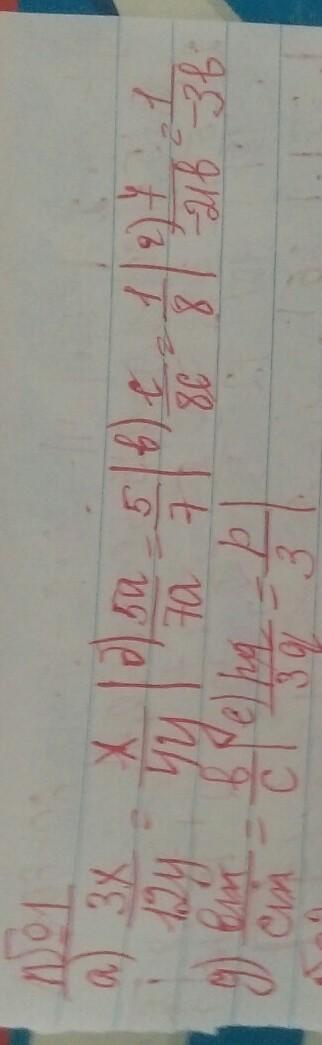 №1
а) 3x/12y = x/4y | б) 5a/7a = 5/7 | в) c/8c = 1/8 | г) 7/-21b = 1/-3b
д) bm/cm = b/c | е) pq/3q = p/3 |